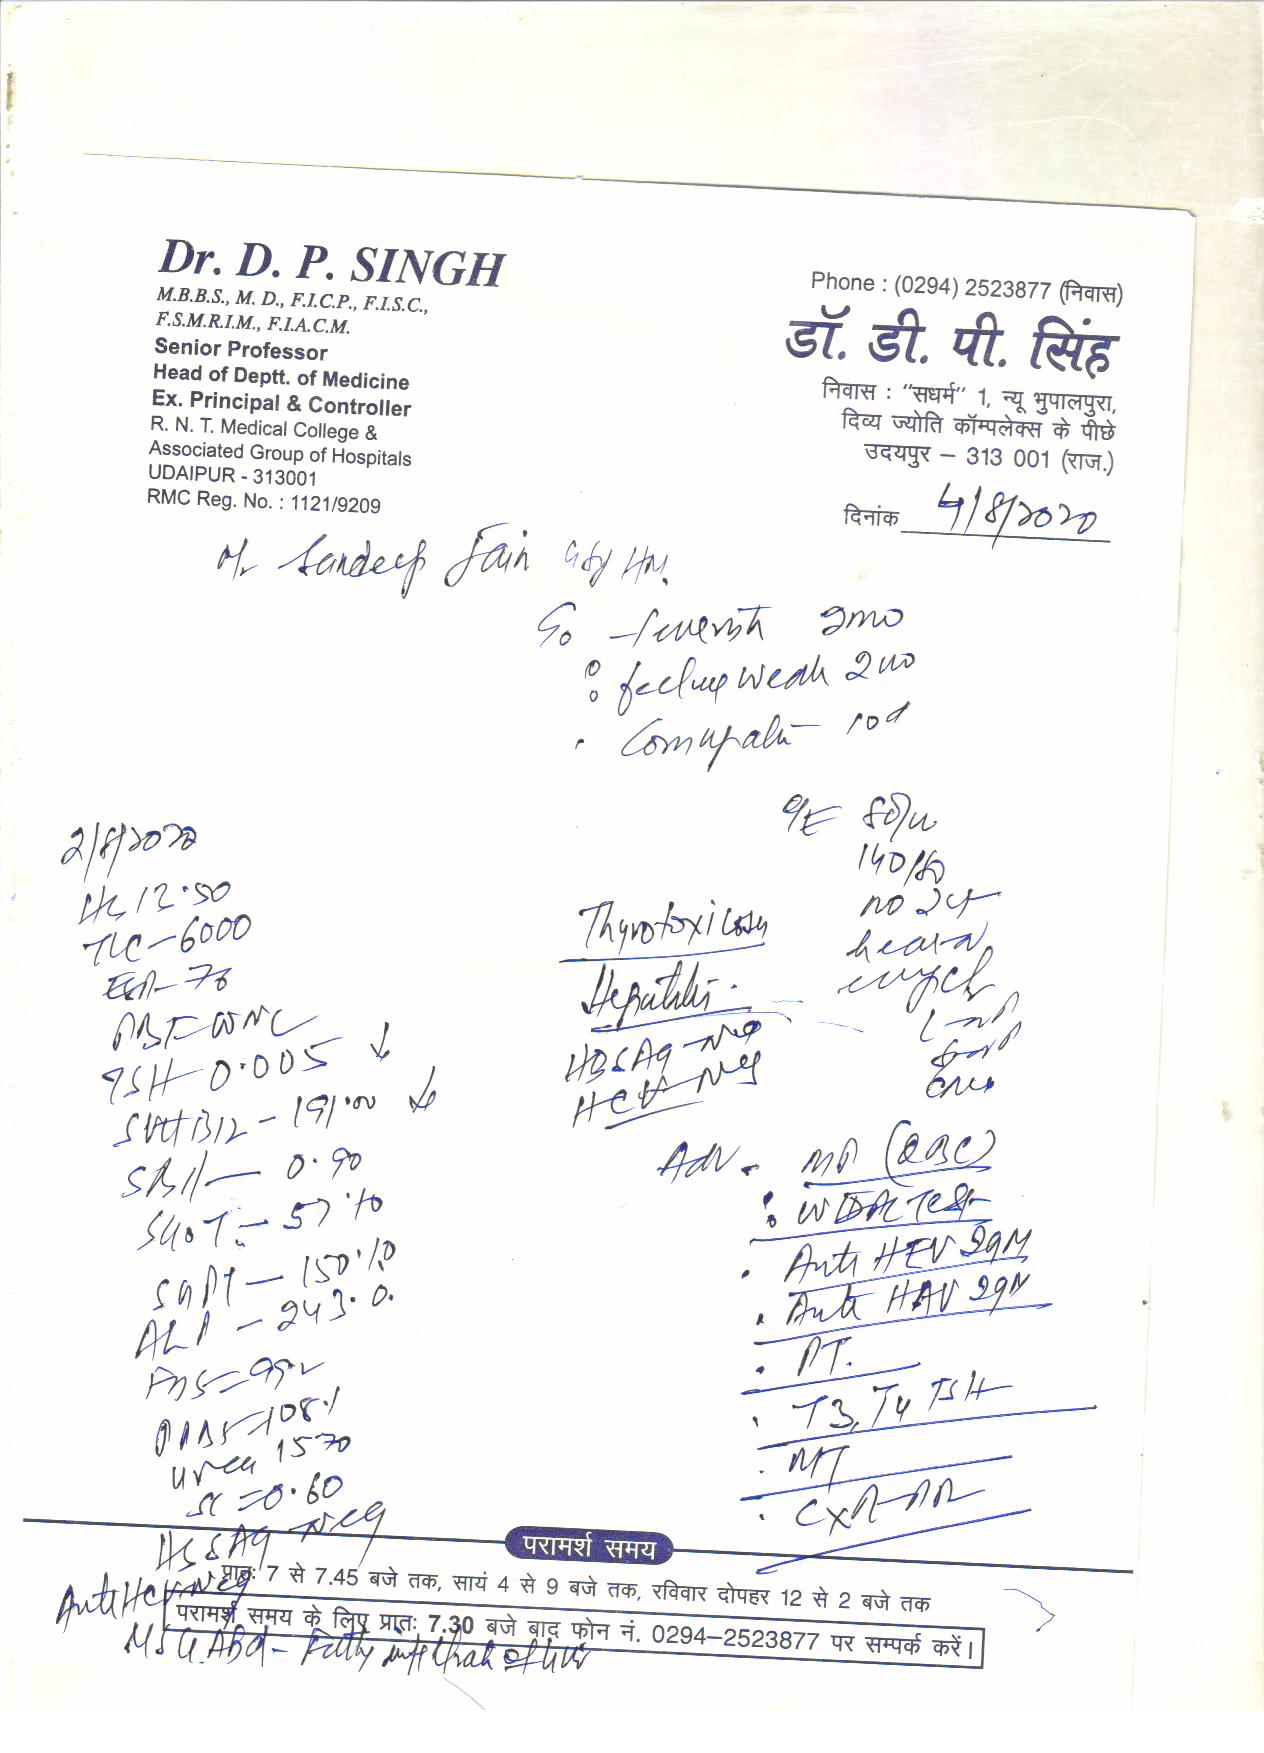 Dr. D. P. SINGH
M.B.B.S., M. D., F.I.C.P., F.I.S.C.,
F.S.M.R.I.M., F.I.A.C.M.
Senior Professor
Head of Deptt. of Medicine
Ex. Principal & Controller
R. N. T. Medical College &
Associated Group of Hospitals
UDAIPUR - 313001
RMC Reg. No. : 1121/9209
Phone : (0294) 2523877 (निवास)
डॉ. डी. पी. सिंह
निवास : "सधर्म" 1, न्यू भुपालपुरा,
दिव्य ज्योति कॉम्पलेक्स के पीछे
उदयपुर – 313 001 (राज.)
दिनांक 4/8/2020
Mr Sandeep Jain
2mo
feeling weak 2mo
10d
O/E
140/80
no
Thyrotoxicosis
Hepatitis
HBSAg - Neg
HCV - Neg
2/8/2020
12.50
TLC - 6000
TSH 0.005 ↓
S Vit B12 - 191.00 ↓
0.90
SGOT - 57.10
SGPT - 150.10
ALP - 243.0
urea 15.70
SC = 0.60
HBSAg - Neg
Anti HCV - Neg
Adv. MP (QBC)
WIDAL TEST
Anti HEV IgM
Anti HAV IgM
PT.
T3, T4 TSH
MT
CXR - PA
परामर्श समय
प्रातः 7 से 7.45 बजे तक, सायं 4 से 9 बजे तक, रविवार दोपहर 12 से 2 बजे तक
परामर्श समय के लिए प्रातः 7.30 बजे बाद फोन नं. 0294–2523877 पर सम्पर्क करें।
Fatty of liver